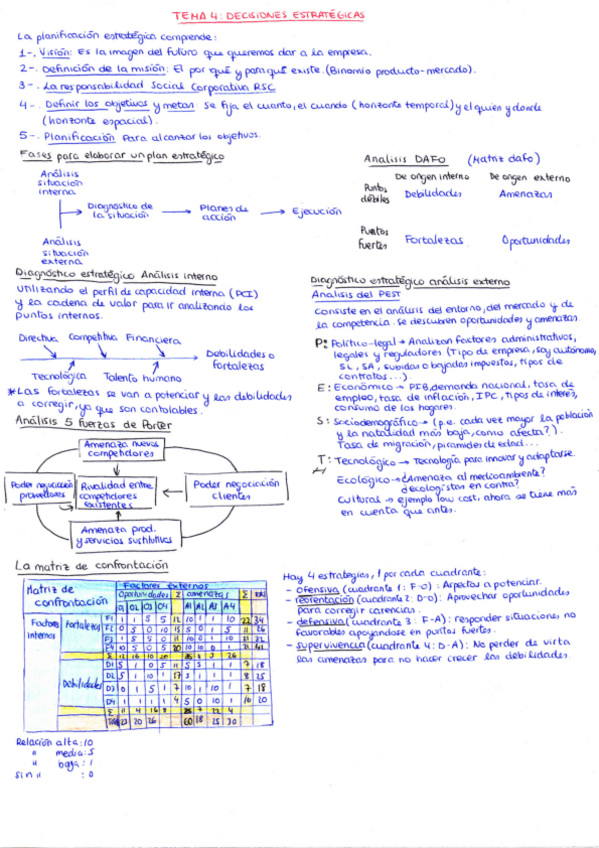 TEMA 4: DECISIONES ESTRATÉGICAS
La planificación estratégica comprende:
1-. Visión: Es la imagen del futuro que queremos dar a la empresa.
2-. Definición de la misión: El por qué y para qué existe. (Binomio producto-mercado).
3-. La responsabilidad Social Corporativa RSC
4-. Definir los objetivos y metas: Se fija el cuanto, el cuando (horizonte temporal) y el quien y donde
(horizonte espacial).
5-. Planificación para alcanzar los objetivos.
Fases para elaborar un plan estratégico
Análisis
situación
interna
Diagnóstico de
la situación
Planes de
acción
Ejecución
Análisis
situación
externa
Analisis DAFO (Matriz dafo)
De origen interno De origen externo
Puntos
débiles
Debilidades Amenazas
Puntos
fuertes
Fortalezas Oportunidades
Diagnóstico estratégico Análisis interno
Utilizando el perfil de capacidad interna (PCI)
y la cadena de valor para ir analizando los
puntos internos.
Directiva Competitiva Financiera
Debilidades o
fortalezas
Tecnológica Talento humano
*Las fortalezas se van a potenciar y las debilidades
a corregir, ya que son controlables.
Diagnóstico estratégico análisis externo
Analisis del PEST
Consiste en el análisis del entorno, del mercado y de
la competencia. Se descubren oportunidades y amenazas.
P: Político-legal → Analizan factores administrativos,
legales y reguladores (Tipo de empresa, soy autónomo,
SL, SA, subidas o bajadas impuestos, tipos de
contratos...)
E: Económico → PIB, demanda nacional, tasa de
empleo, tasa de inflación, IPC, tipos de interés,
consumo de los hogares.
S: Sociodemográfico → (p.e. cada vez mayor la población
y la natalidad más baja, como afecta?).
Tasa de migración, pirámides de edad...
T: Tecnológico → Tecnología para innovar y adaptarse.
Ecológico → ¿Amenaza al medioambiente?
¿ecologistas en contra?
Cultural → ejemplo low cost, ahora se tiene más
en cuenta que antes.
Análisis 5 fuerzas de Porter
Amenaza nuevos
competidores
Poder negociación
proveedores
Rivalidad entre
competidores
existentes
Poder negociación
clientes
Amenaza prod.
y servicios sustitutivos
La matriz de confrontación
Matriz de
confrontación
Factores externos
Oportunidades Σ amenazas Σ
O1 O2 O3 O4 A1 A2 A3 A4
Factores
internos
Fortalezas
F1 1 1 5 5 12 10 1 1 10 22 34
F2 0 5 0 10 15 5 0 1 5 11 26
F3
F4
Σ
Debilidades
D1 5 1 0 5 11 5 1 1 7 18
D2 5 1 10 1 17 1 1 8 25
D3 0 1 5 1 7 10 1 7 18
D4 1 1 1 1 4 5 0 10 1 16 20
Σ
Hay 4 estrategias, 1 por cada cuadrante:
- ofensiva (cuadrante 1: F-O): Aspectos a potenciar.
- reorientación (cuadrante 2: D-O): Aprovechar oportunidades
para corregir carencias.
- defensiva (cuadrante 3: F-A): responder situaciones no
favorables apoyandose en puntos fuertes.
- supervivencia (cuadrante 4: D-A): No perder de vista
las amenazas para no hacer crecer las debilidades.
Relación alta: 10
" media: 5
" baja: 1
sin " : 0